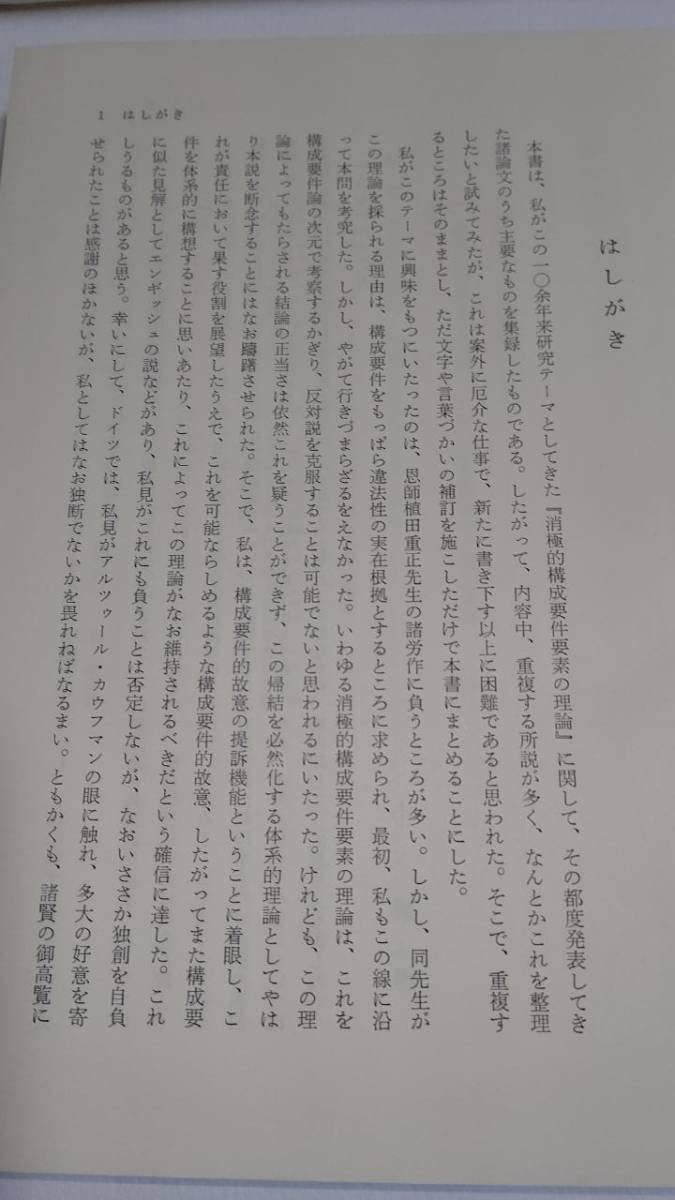 はしがき
本書は、私がこの一〇余年来研究テーマとしてきた『消極的構成要件要素の理論』に関して、その都度発表してき
た諸論文のうち主要なものを集録したものである。したがって、内容中、重複する所説が多く、なんとかこれを整理
したいと試みてみたが、これは案外に厄介な仕事で、新たに書き下す以上に困難であると思われた。そこで、重複す
るところはそのままとし、ただ文字や言葉づかいの補訂を施こしただけで本書にまとめることにした。
私がこのテーマに興味をもつにいたったのは、恩師植田重正先生の諸労作に負うところが多い。しかし、同先生が
この理論を採られる理由は、構成要件をもっぱら違法性の実在根拠とするところに求められ、最初、私もこの線に沿
って本問を考究した。しかし、やがて行きづまらざるをえなかった。いわゆる消極的構成要件要素の理論は、これを
構成要件論の次元で考察するかぎり、反対説を克服することは可能でないと思われるにいたった。けれども、この理
論によってもたらされる結論の正当さは依然これを疑うことができず、この帰結を必然化する体系的理論としてやは
り本説を断念することにはなお躊躇させられた。そこで、私は、構成要件的故意の提訴機能ということに着眼し、こ
れが責任において果す役割を展望したうえで、これを可能ならしめるような構成要件的故意、したがってまた構成要
件を体系的に構想することに思いあたり、これによってこの理論がなお維持されるべきだという確信に達した。これ
に似た見解としてエンギッシュの説などがあり、私見がこれにも負うことは否定しないが、なおいささか独創を自負
しうるものがあると思う。幸いにして、ドイツでは、私見がアルツゥール・カウフマンの眼に触れ、多大の好意を寄
せられたことは感謝のほかないが、私としてはなお独断でないかを畏れねばなるまい。ともかくも、諸賢の御高覧に
1 はしがき